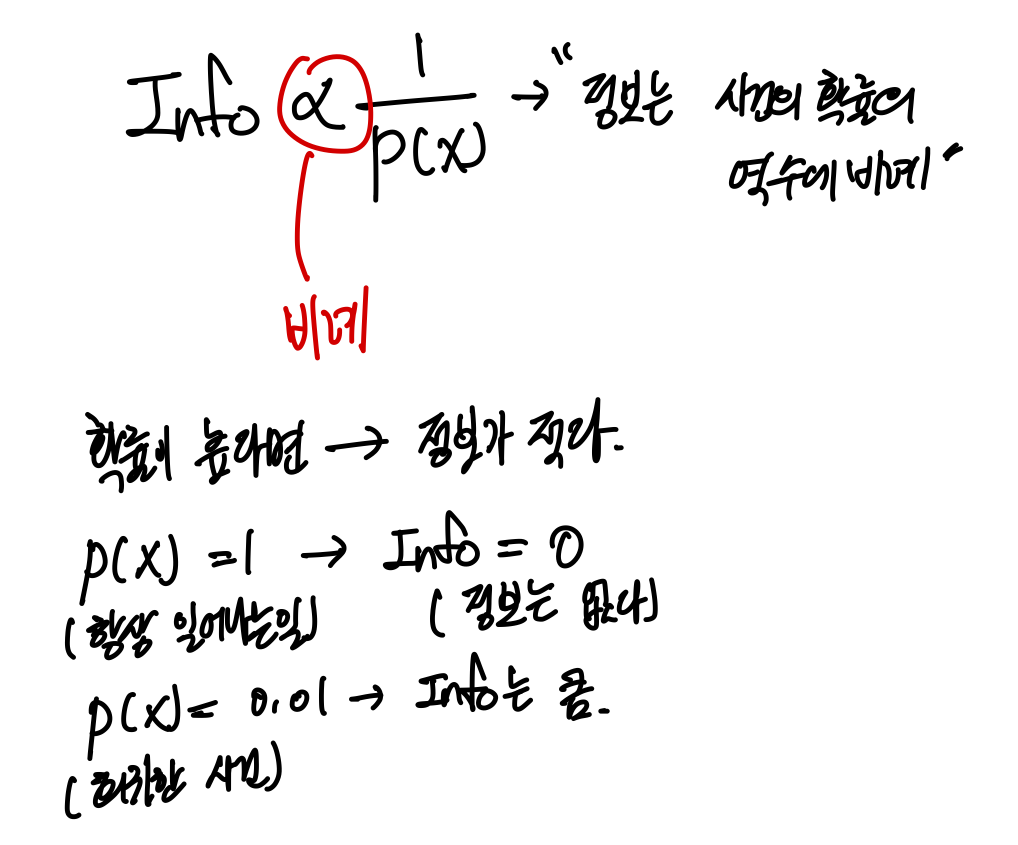 Info ∝ 1/p(x) → "정보는 사건의 확률의
역수에 비례"
비례
확률이 높다면 → 정보가 적다.
p(x) = 1 → Info = 0
(항상 일어나는일) (정보는 없다)
p(x) = 0.01 → Info는 큼.
(희귀한 사건)